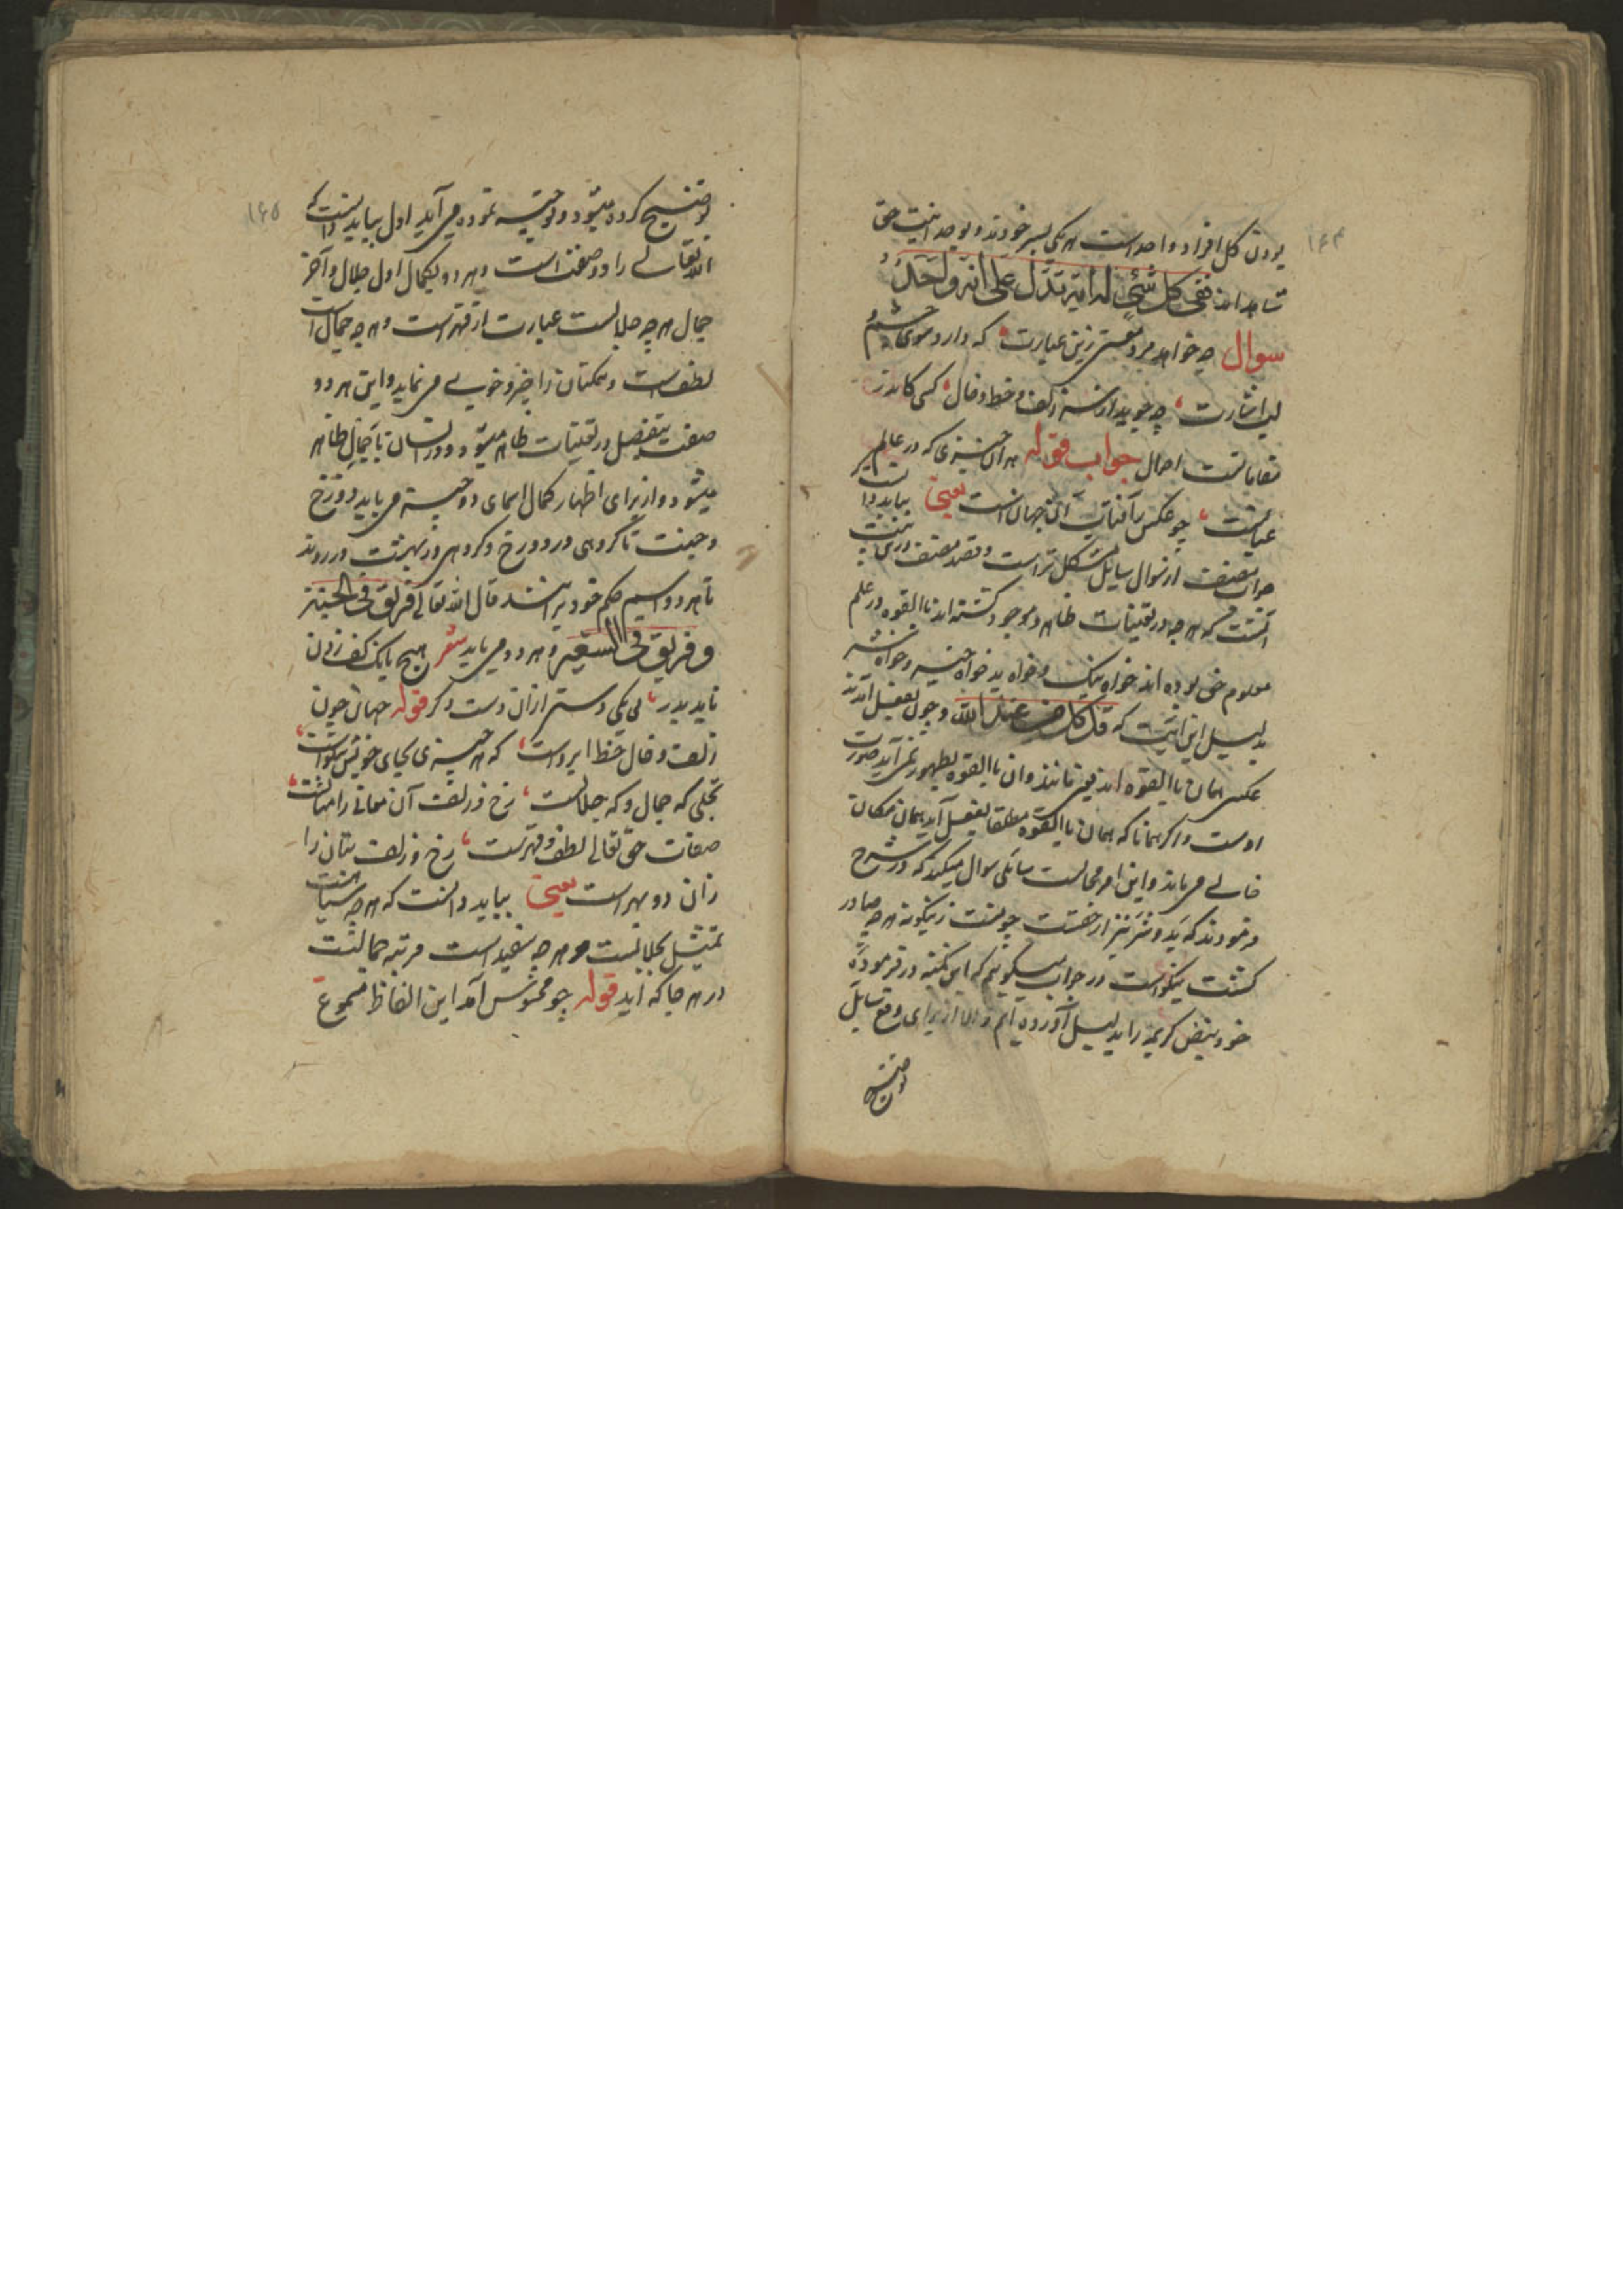 ۱۶۴
بودن کل افراد واحد است هر یکی بسر خودند و بوحدانیت حق
شاهد اند ففی کل شیء له آیة تدل علی انه واحد
سوال چه خواهد مرد معنی زین عبارت که دارد سوی چشم
لب اشارت چه جوید از سر زلف و خط و خال کسی کاندر
مقاماتست احوال جواب قوله هر آن چیزی که در عالم
عیانست چو عکسی ز آفتاب آن جهان است یعنی بباید دانست که
جواب مصنف از سوال سایل مشکل تر است و قصد مصنف درین بیت
آنست که هر چه در تعینات ظاهر و موجود گشته اند باالقوه در علم
معلوم حق بوده اند خواه نیک و خواه بد خواه خیر و خواه شر
بدلیل این آیت که قل کل من عند الله و چون بفعل آمدند
عکس همان باالقوه اند یقین نانند و آن باالقوه بظهور نمی آید صورت
اوست و اگر همانا که همان باالقوه مطلقا بفعل آید همان مکان
خالی می ماند و این امر محالست سایلی سوال میکند که در شرح
فرمودند که بد و شر نیز از حقست چونست ز نیکو هر چه صادر
گشت نیکوست در جواب میگوئیم که این نکته در فرموده
خود بنص کریمه را بدلیل آورده ایم و الا از برای وقع سایل
توضیح
۱۶۵
توضیح کرده میشود و توجیه نموده می آید اول بباید دانست که
الله تعالی را دو صفت است و هر دو بکمال اول جلال و آخر
جمال هر چه جلالست عبارت از قهر است و هر چه جمال است
لطف است و ممکنان را خیر و خوبی می نماید و این هر دو
صفت بتفصیل در تعینات ظاهر میشود و در انسان باجمال ظاهر
میشود و از برای اظهار کمال اسمای دو چیز می باید دوزخ
و جنت تا گروهی در دوزخ و گروهی در بهشت در روند
تا هر دو اسم حکم خود برانند قال الله تعالی فریق فی الجنة
و فریق فی السعیر و هر دو می باید شعر هیچ بانک کف زدن
ناید بدر بی یکی دست تر از آن دست دگر قوله جهان چون
زلف و خال خط ابروست که هر چیزی بجای خویش نیکوست
تجلی که جمال و که جلالست رخ و زلف آن معانی را مثالست
صفات حق تعالی لطف و قهرست رخ و زلف بتان را
زان دو بهر است یعنی بباید دانست که هر چه سیاهست
تمثیل بجلالست و هر چه سفید است مرتبه جمالست
در هر جا که آید قوله چو محسوس آمد این الفاظ مسموع